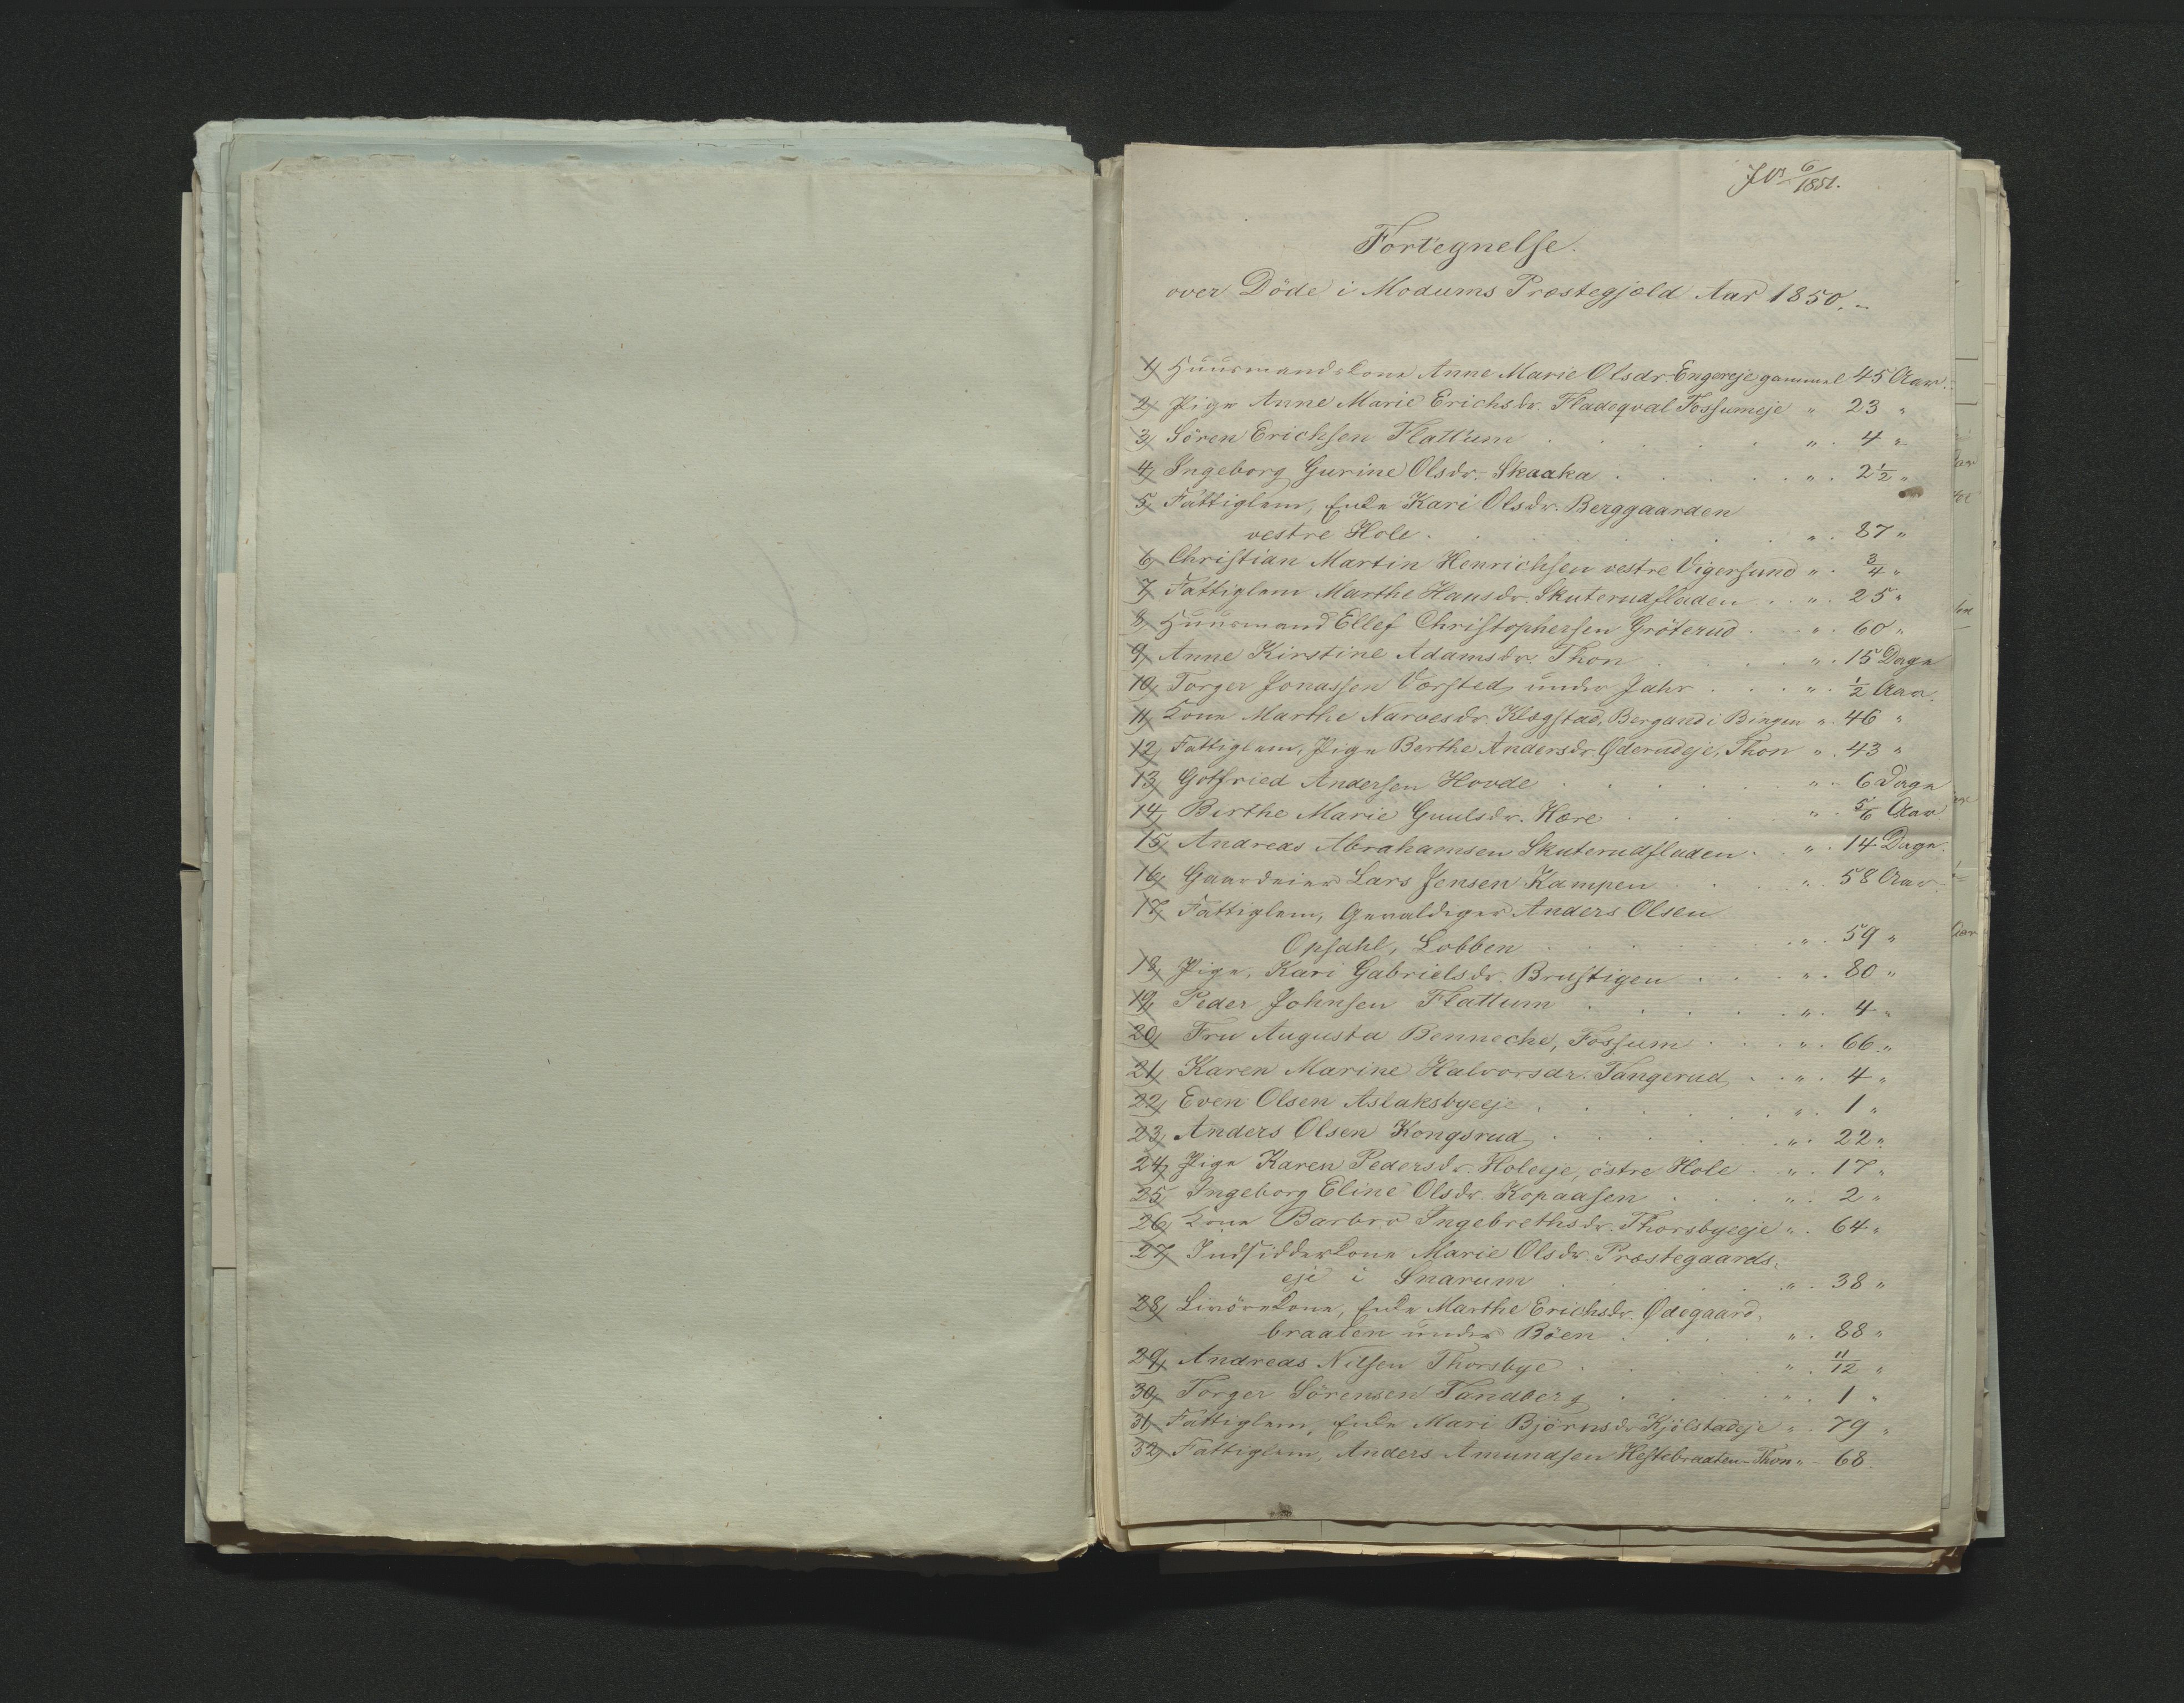 6/1851.
Fortegnelse
over Döde i Modums Præstegjæld Aar 1850.
1, Huusmandskone Anne Marie Olsdr. Engereje gammel 45 Aar.
2, Pige Anne Marie Erichsdr. Fladeqval Fossumeje " 23 "
3, Sören Erichsen Flattum " 4 "
4, Ingeborg Gurine Olsdr. Skaaka " 2½ "
5, Fattiglem, Enke Kari Olsdr. Berggaarden
vestre Hole " 87 "
6, Christian Martin Henrichsen vestre Vigersund " 3/4 "
7, Fattiglem Marthe Hansdr. Skuterudfladen " 25 "
8, Huusmand Ellef Christophersen Gröterud " 60 "
9, Anne Kirstine Adamsdr. Thon " 15 Dage
10, Torger Jonassen Vorsted under Jahr " ½ Aar.
11, Kone Marthe Narvesdr. Klægstad, Bergand i Bingen " 46 "
12, Fattiglem, Pige Berthe Andersdr. Øderudeje, Thon " 43 "
13, Gotfried Andersen Hovde " 6 Dage
14, Berthe Marie Guulsdr. Hære " 5/6 Aar
15, Andreas Abrahamsen Skuterudfladen " 14 Dage.
16, Gaardeier Lars Jensen Kampen " 58 Aar.
17, Fattiglem, Gevaldiger Anders Olsen
Opsahl, Lobben " 59 "
18, Pige, Kari Gabrielsdr. Brustigen " 80 "
19, Peder Johnsen Flattum " 4 "
20, Fru Augusta Benneche, Fossum " 66 "
21, Karen Marine Halvorsdr. Tangerud " 4 "
22, Even Olsen Aslaksbyeeje " 1 "
23, Anders Olsen Kongsrud " 22 "
24, Pige Karen Pedersdr. Holeeje, östre Hole " 17 "
25, Ingeborg Eline Olsdr. Kopaasen " 2 "
26, Kone Barbro Ingebrethsdr. Thorsbyeeje " 64 "
27, Indsidderkone Marie Olsdr. Præstegaards-
eje i Snarum " 38 "
28, Livörekone, Enke Marthe Erichsdr. Ødegaard-
braaten under Böen " 88 "
29, Andreas Nilsen Thorsbye " 11/12 "
30, Torger Sörensen Tandberg " 1 "
31, Fattiglem, Enke Mari Björnsdr. Kjölstadeje " 79 "
32, Fattiglem, Anders Amundsen Hestebraaten-Thon " 68